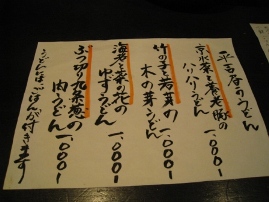 平日昼のうどん
京水菜と養老豚の
ハリハリうどん 一、〇〇〇-
竹の子と若芽の
木の芽うどん 一、〇〇〇-
海老と菜の花の
ゆずうどん 一、〇〇〇-
ぶつ切り九条葱の
肉うどん 一、〇〇〇-
うどんにはごはんが付きます